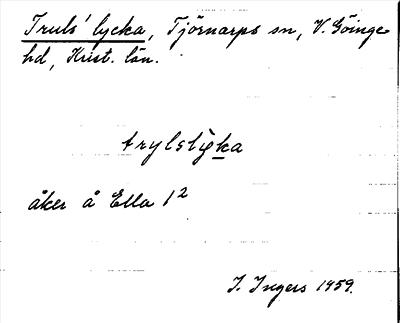 Truls' lycka, Tjörnarps sn, V. Göinge
hd, Krist. län.
trylslyka
åker å Ella 1²
I. Ingers 1959.